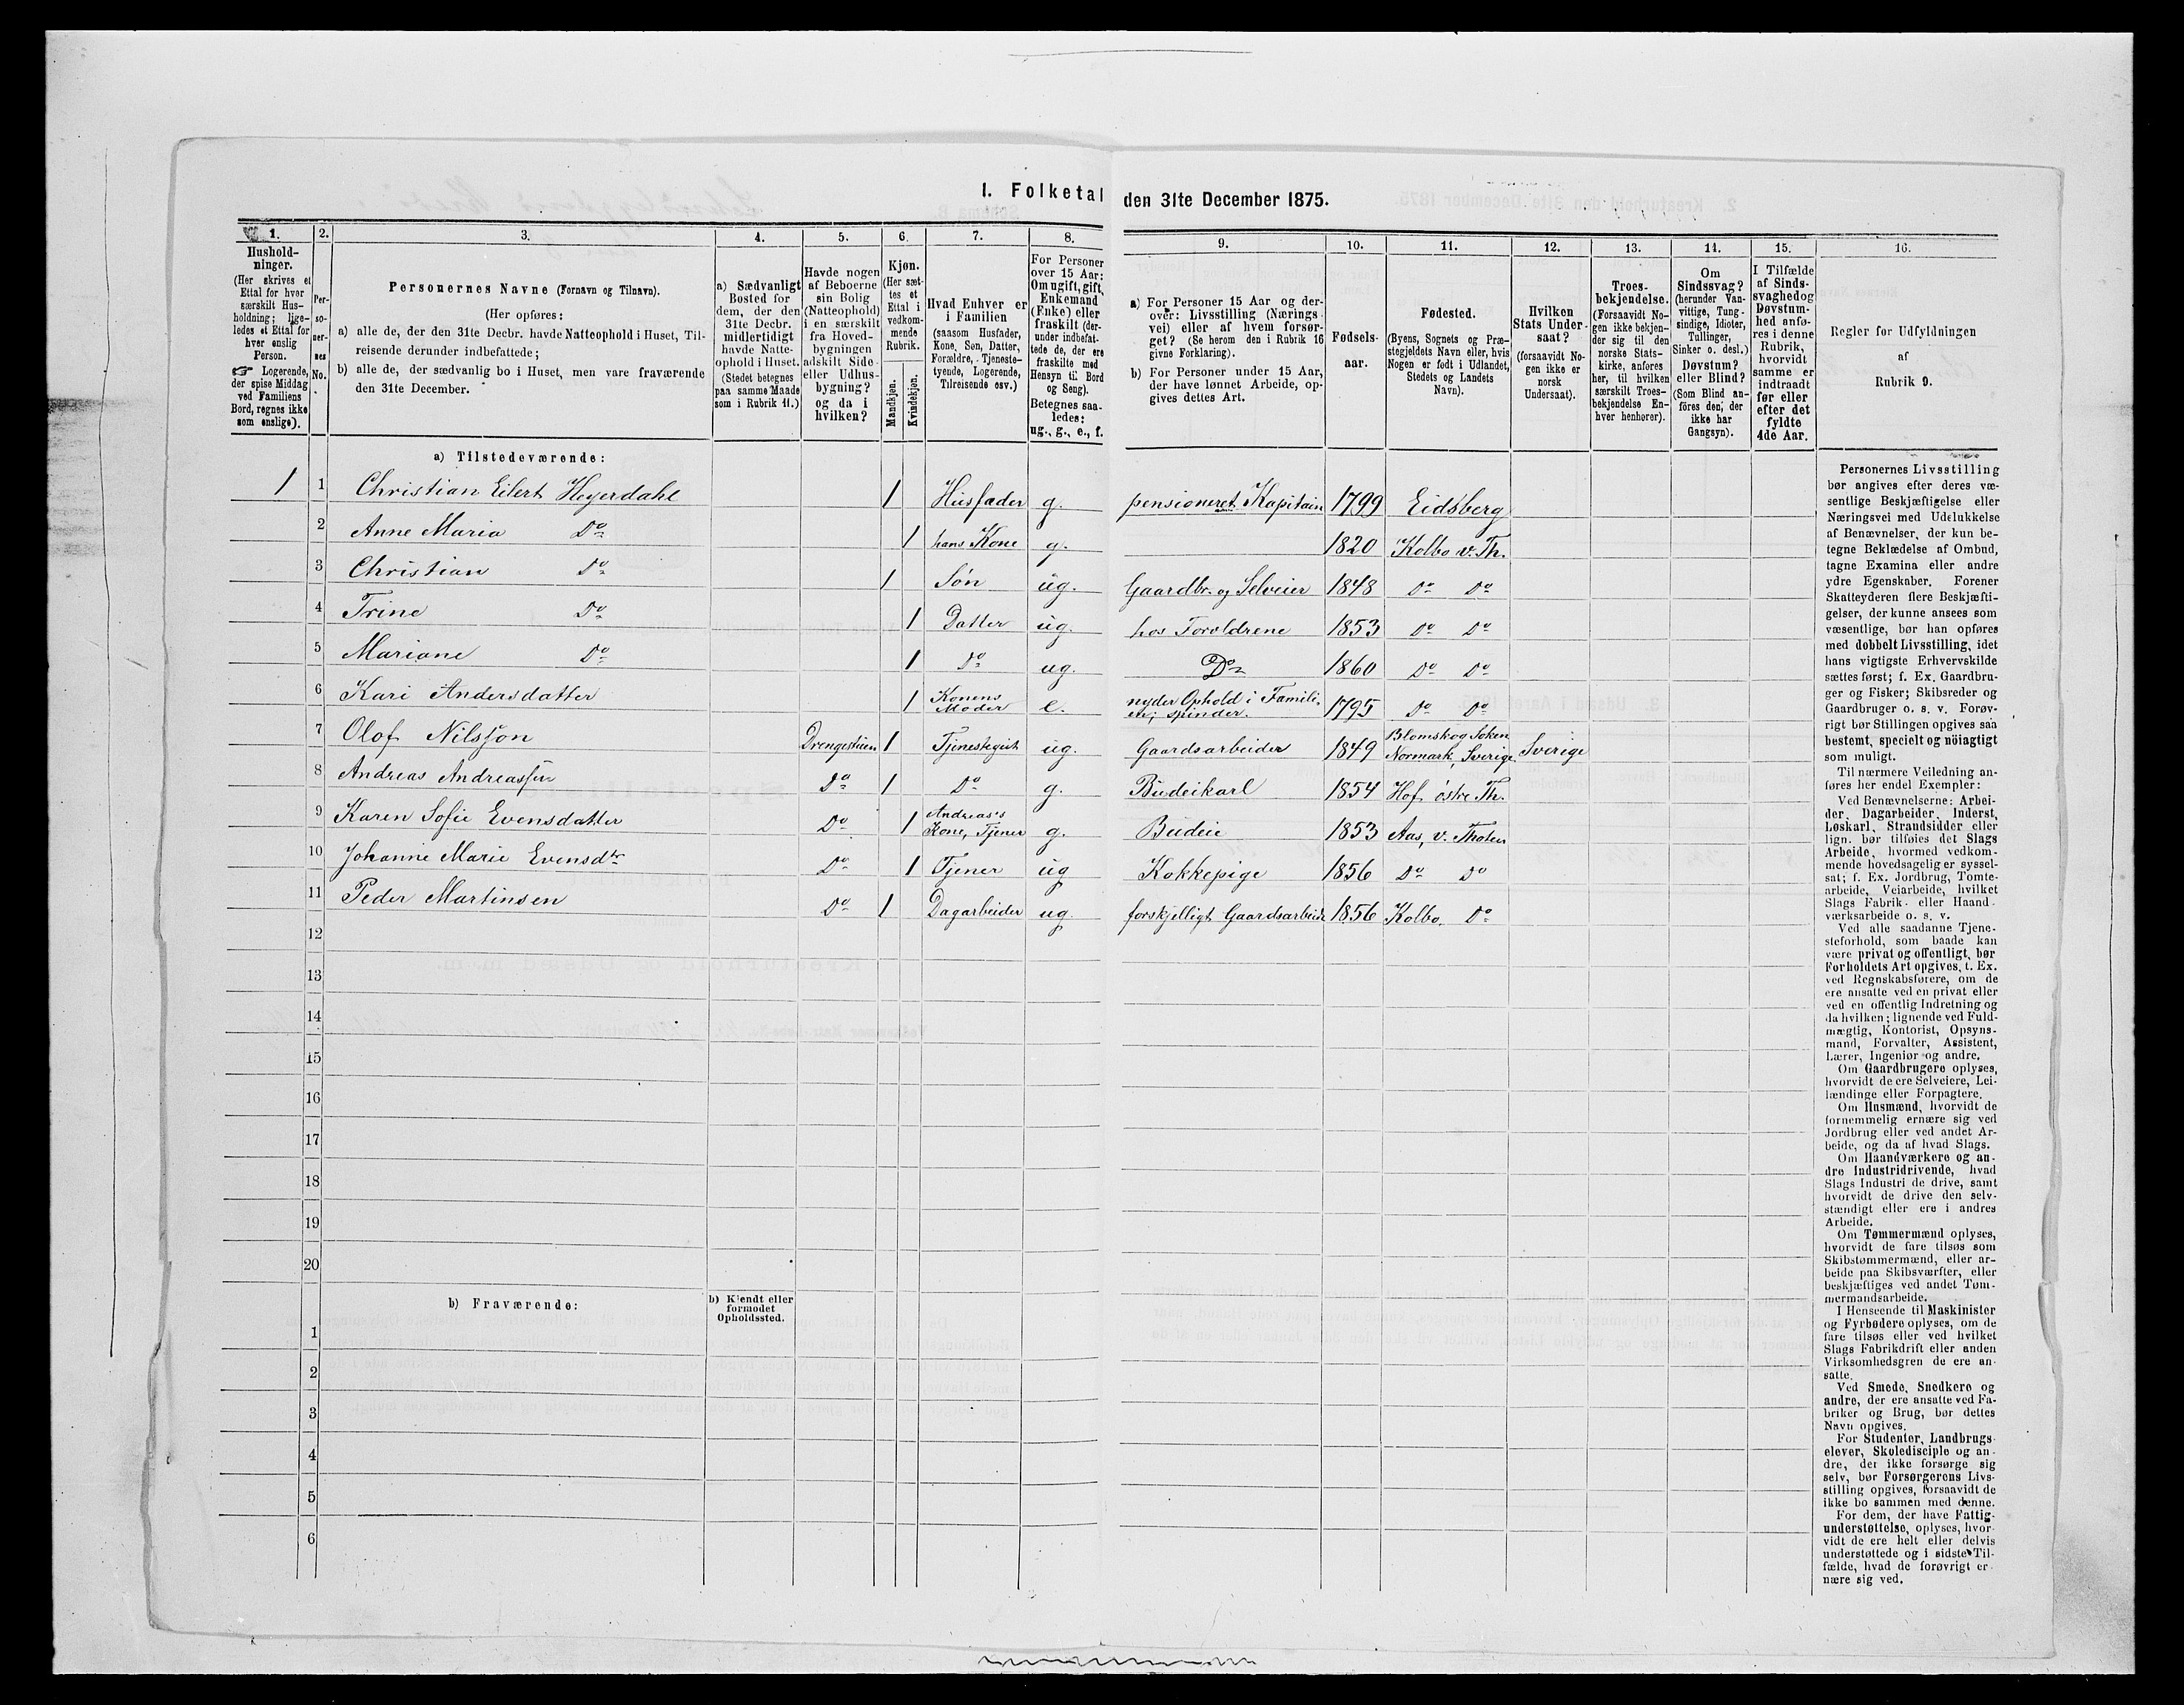 I. Folketal den 31te December 1875.
1.
Hushold-
ninger.
(Her skrives et
Ettal for hver
særskilt Hus-
holdning; lige-
ledes et Ettal for
hver enslig
Person.
☞ Logerende,
der spise Middag
ved Familiens
Bord, regnes ikke
som enslige).
2.
Per-
so-
ner-
nes
No.
3.
Personernes Navne (Fornavn og Tilnavn).
(Her opføres:
a) alle de, der den 31te Decbr. havde Natteophold i Huset, Til-
reisende derunder indbefattede;
b) alle de, der sædvanlig bo i Huset, men vare fraværende
den 31te December.
4.
a) Sædvanligt
Bosted for
dem, der den
31te Decbr.
midlertidigt
havde Natte-
ophold i Huset.
(Stedet betegnes
paa samme Maade
som i Rubrik 11.)
5.
Havde nogen
af Beboerne
sin Bolig
(Natteophold)
i en særskilt
fra Hoved-
bygningen
adskilt Side-
eller Udhus-
bygning?
og da i
hvilken?
6.
Kjøn.
(Her sæt-
tes et
Ettal i
vedkom-
mende
Rubrik.
Mandkjøn.
Kvindekjøn.
7.
Hvad Enhver er
i Familien
(saasom Husfader,
Kone, Søn, Datter,
Forældre, Tjeneste-
tyende, Logerende,
Tilreisende osv.)
8.
For Personer
over 15 Aar:
Om ugift, gift,
Enkemand
(Enke) eller
fraskilt (der-
under indbefat-
tede de, der ere
fraskilte med
Hensyn til Bord
og Seng).
Betegnes saa-
ledes:
ug., g., e., f.
9.
a) For Personer 15 Aar og der-
over: Livsstilling (Nærings-
vei) eller af hvem forsør-
get? (Se herom den i Rubrik 16
givne Forklaring).
b) For Personer under 15 Aar,
der have lønnet Arbeide, op-
gives dettes Art.
10.
Fødsels-
aar.
11.
Fødested.
(Byens, Sognets og Præ-
stegjeldets Navn eller, hvis
Nogen er født i Udlandet,
Stedets og Landets
Navn).
12.
Hvilken
Stats Under-
saat?
(forsaavidt No-
gen ikke er
norsk
Undersaat).
13.
Troes-
bekjendelse.
(Forsaavidt No-
gen ikke bekjen-
der sig til den
norske Stats-
kirke, anføres
her, til hvilken
særskilt Troes-
bekjendelse En-
hver henhører).
14.
Om
Sindssvag?
(herunder Van-
vittige, Tung-
sindige, Idioter,
Tullinger,
Sinker o. desl.)
Døvstum?
eller Blind?
(Som Blind an-
føres den, der
ikke har
Gangsyn).
15.
I Tilfælde
af Sinds-
svaghed og
Døvstum-
hed anfø-
res i denne
Rubrik,
hvorvidt
samme er
indtraadt
før eller
efter det
fyldte
4de Aar.
16.
Regler for Udfyldningen
af
Rubrik 9.
a) Tilstedeværende:
1 1 Christian Eilert Heyerdahl 1 Husfader g. pensioneret Kapitain 1799 Eidsberg
2 Anne Maria Do 1 hans Kone g. 1820 Kolbo v. Th.
3 Christian Do 1 Søn ug. Gaardbr. og Selveier 1848 Do Do
4 Trine Do 1 Datter ug. hos Foroldrene 1853 Do Do
5 Mariane Do 1 Do ug. Do 1860 Do Do
6 Kari Andersdatter 1 Konens Moder e. nyder Ophold i Famili-
en, spinder. 1795 Do Do
7 Olof Nilsson Drengestuen 1 Tjenestegut ug. Gaardsarbeider 1849 Blomskog Soken
Normark, Sverige Sverige
8 Andreas Andreassen Do 1 Do g. Budeikarl 1854 Hof østre Th.
9 Karen Sofie Evensdatter Do 1 Andreas's
Kone, Tjener g. Budeie 1853 Aas, v. Thoten
10 Johanne Marie Evensdtr Do 1 Tjener ug Kokkepige 1856 Do Do
11 Peder Martinsen Do 1 Dagarbeider ug. forskjelligt Gaardsarbeide 1856 Kolbo. Do
12
13
14
15
16
17
18
19
20
b) Fraværende:
b) Kjendt eller
formodet
Opholdssted.
1
2
3
4
5
6
Personernes Livsstilling
bør angives efter deres væ-
sentlige Beskjæftigelse eller
Næringsvei med Udelukkelse
af Benævnelser, der kun be-
tegne Beklædelse af Ombud,
tagne Examina eller andre
ydre Egenskaber. Forener
Skatteyderen flere Beskjæfti-
gelser, der kunne ansees som
væsentlige, bør han opføres
med dobbelt Livsstilling, idet
hans vigtigste Erhvervskilde
sættes først; f. Ex. Gaardbru-
ger og Fisker; Skibsreder og
Gaardbruger o. s. v. Forøv-
rigt bør Stillingen opgives saa
bestemt, specielt og nöiagtigt
som muligt.
Til nærmere Veiledning an-
føres her endel Exempler:
Ved Benævnelserne: Arbei-
der, Dagarbeider, Inderst,
Løskarl, Strandsidder eller
lign. bør tilføies det Slags
Arbeide, hvormed vedkom-
mende hovedsagelig er syssel-
sat; f. Ex. Jordbrug, Tomte-
arbeide, Veiarbeide, hvilket
Slags Fabrik- eller Haand-
værksarbeide o. s. v.
Ved alle saadanne Tjene-
steforhold, som baade kan
være privat og offentligt, bør
Forholdets Art opgives, t. Ex.
ved Regnskabsførere, om de
ere ansatte ved en privat eller
ved en offentlig Indretning og
da hvilken; lignende ved Fuld-
mægtig, Kontorist, Opsyns-
mand, Forvalter, Assistent,
Lærer, Ingeniør og andre.
Om Gaardbrugere oplyses,
hvorvidt de ere Selveiere, Lei-
lændinge eller Forpagtere.
Om Husmænd, hvorvidt de
fornemmelig ernære sig ved
Jordbrug eller ved andet Ar-
beide, og da af hvad Slags.
Om Haandværkere og an-
dre Industridrivende, hvad
Slags Industri de drive, samt
hvorvidt de drive den selv-
stændigt eller ere i andres
Arbeide.
Om Tømmermænd oplyses,
hvorvidt de fare tilsøs som
Skibstømmermænd, eller ar-
beide paa Skibsværfter, eller
beskjæftiges ved andet Tøm-
mermandsarbeide.
I Henseende til Maskinister
og Fyrbødere oplyses, om de
fare tilsøs eller ved hvilket
Slags Fabrikdrift eller anden
Virksomhedsgren de ere an-
satte.
Ved Smede, Snedkere og
andre, der ere ansatte ved Fa-
briker og Brug, bør dettes
Navn opgives.
For Studenter, Landbrugs-
elever, Skoledisciple og an-
dre, der ikke forsørge sig
selv, bør Forsørgerens Livs-
stilling opgives, forsaavidt de
ikke bo sammen med denne.
For dem, der have Fattig-
understøttelse, oplyses, hvor-
vidt de ere helt eller delvis
understøttede og i sidste Til-
fælde, hvad de forøvrigt er-
nære sig ved.